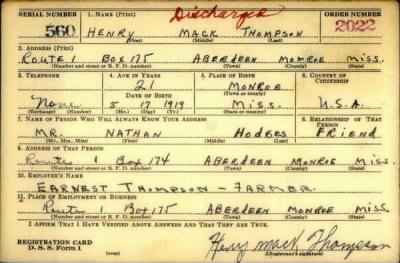 SERIAL NUMBER 1. NAME (Print) Discharged ORDER NUMBER
560 HENRY MACK THOMPSON 2022
(First) (Middle) (Last)
2. ADDRESS (Print)
ROUTE 1 BOX 175 ABERDEEN MONROE MISS.
(Number and street or R. F. D. number) (Town) (County) (State)
3. TELEPHONE 4. AGE IN YEARS 5. PLACE OF BIRTH 6. COUNTRY OF CITIZENSHIP
21 MONROE
DATE OF BIRTH (Town or county)
None 5 17 1919 MISS. U.S.A.
(Exchange) (Number) (Mo.) (Day) (Yr.) (State or country)
7. NAME OF PERSON WHO WILL ALWAYS KNOW YOUR ADDRESS 8. RELATIONSHIP OF THAT PERSON
MR. NATHAN HODGES FRIEND
(Mr., Mrs., Miss) (First) (Middle) (Last)
9. ADDRESS OF THAT PERSON
Route 1 Box 174 ABERDEEN MONROE MISS.
(Number and street or R. F. D. number) (Town) (County) (State)
10. EMPLOYER'S NAME
EARNEST THOMPSON - FARMER.
11. PLACE OF EMPLOYMENT OR BUSINESS
Route 1 Box 175 ABERDEEN MONROE MISS.
(Number and street or R. F. D. number) (Town) (County) (State)
I AFFIRM THAT I HAVE VERIFIED ABOVE ANSWERS AND THAT THEY ARE TRUE.
REGISTRATION CARD
D. S. S. Form 1
Henry Mack Thompson
(Registrant's signature)